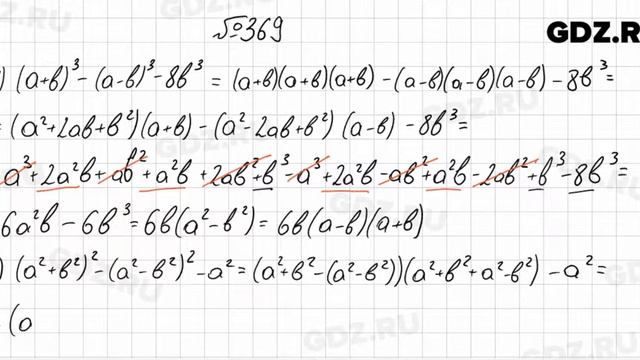 №369
GDZ.R
) (a+b)³-(a-b)³-8b³ = (a+b)(a+b)(a+b) -(a-b)(a-b)(a-b)-8b³=
=(a²+2ab+b²)(a+b)-(a²-2ab+b²)(a-b)-8b³=
a³+2a²b+ab²+a²b+2ab²+b³-a³+2a²b-ab²+a²b-2ab²+b³-8b³=
6a²b-6b³=6b(a²-b²)=6b(a-b)(a+b)
) (a²+b²)²-(a²-b²)²-a²=(a²+b²-(a²-b²))(a²+b²+a²-b²)-a²=
(a
GDZ.RU